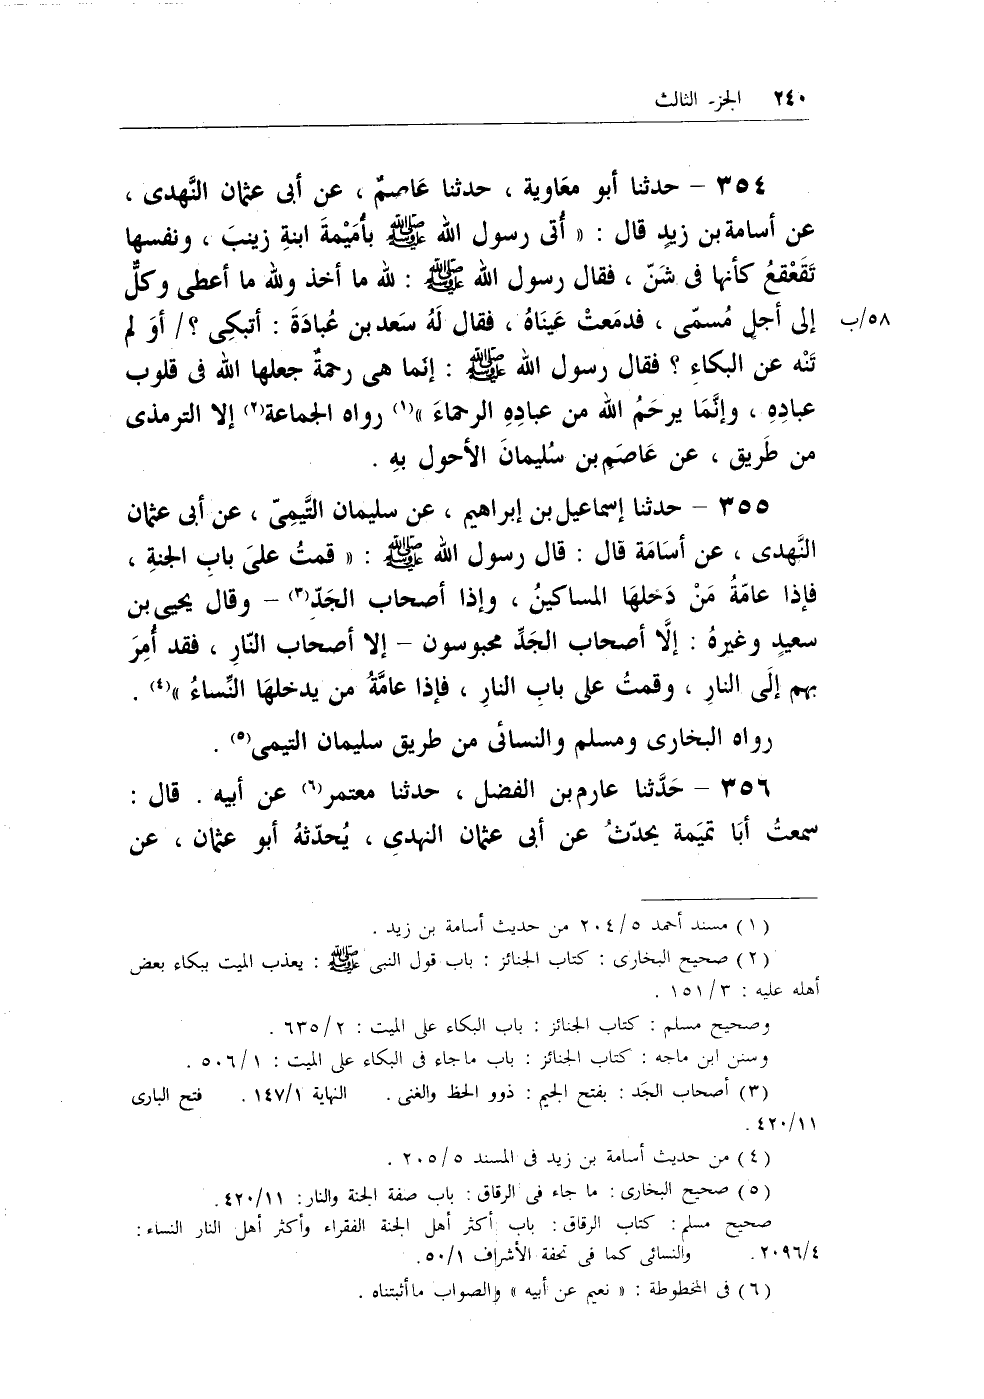 ٢٤٠ الجزء الثالث
٣٥٤ – حدثنا أبو معَاوية ، حدثنا عَاصمٌ ، عن أبى عثمان النَّهدى ،
عن أسامة بن زيدٍ قال : « أُتى رسول الله ﷺ بأُمَيْمةَ ابنةِ زينبَ ، ونفسها
تَقَعْقعُ كأنها فى شَنّ ، فقال رسول الله ﷺ : لله ما أخذ ولله ما أعطى وكلٌّ
إلى أجلٍ مُسمّى ، فدمَعتْ عَينَاهُ ، فقال لَهُ سَعد بن عُبادَةَ : أتبكِى ؟/ أوَ لم ٥٨/ب
تَنْه عن البكاءِ ؟ فقال رسول الله ﷺ : إنَما هى رحمةٌ جعلها الله فى قلوب
عبادِهِ ، وإنَّمَا يرحَمُ الله من عبادِهِ الرحماءَ »(١) رواه الجماعة(٢) إلا الترمذى
من طَريق ، عن عَاصَمِ بن سُليمانَ الأحول بهِ .
٣٥٥ – حدثنا إسماعيل بن إبراهيم ، عن سليمان التَّيمِىّ ، عن أبى عثمان
النَّهدى ، عن أسَامَة قال : قال رسول الله ﷺ : « قمتُ علىَ بابِ الجنةِ ،
فإذا عامّةُ مَنْ دَخلهَا المساكينُ ، وإذا أصحاب الجَدّ(٣) – وقال يحيى بن
سعيدٍ وغيرهُ : إلَّا أصحاب الجَدِّ محبوسون – إلا أصحاب النّارِ ، فقد أُمِرَ
بهم إلَى النارِ ، وقمتُ على بابِ النارِ ، فإذا عامَّةُ من يدخلهَا النِّساءُ »(٤) .
رواه البخارى ومسلم والنسائى من طريق سليمان التيمى(٥) .
٣٥٦ – حَدَّثنا عارم بن الفضل ، حدثنا معتمر(٦) عن أبيه . قال :
سمعتُ أبَا تميَمة يحدّثُ عن أبى عثمان النهدىِ ، يُحدّثهُ أبو عثمان ، عن
(١) مسند أحمد ٢٠٤/٥ من حديث أسامة بن زيد .
(٢) صحيح البخارى : كتاب الجنائز : باب قول النبى ﷺ : يعذب الميت ببكاء بعض
أهله عليه : ١٥١/٣ .
وصحيح مسلم : كتاب الجنائز : باب البكاء على الميت : ٦٣٥/٢ .
وسنن ابن ماجه : كتاب الجنائز : باب ما جاء فى البكاء على الميت : ٥٠٦/١ .
(٣) أصحاب الجَد : بفتح الجيم : ذوو الحظ والغنى . النهاية ١٤٧/١ . فتح البارى
٤٢٠/١١ .
(٤) من حديث أسامة بن زيد فى المسند ٢٠٥/٥ .
(٥) صحيح البخارى : ما جاء فى الرقاق : باب صفة الجنة والنار : ٤٢٠/١١ .
صحيح مسلم : كتاب الرقاق : باب أكثر أهل الجنة الفقراء وأكثر أهل النار النساء :
٢٠٩٦/٤ . والنسائى كما فى تحفة الأشراف ٥٠/١ .
(٦) فى المخطوطة : « نعيم عن أبيه » والصواب ما أثبتناه .